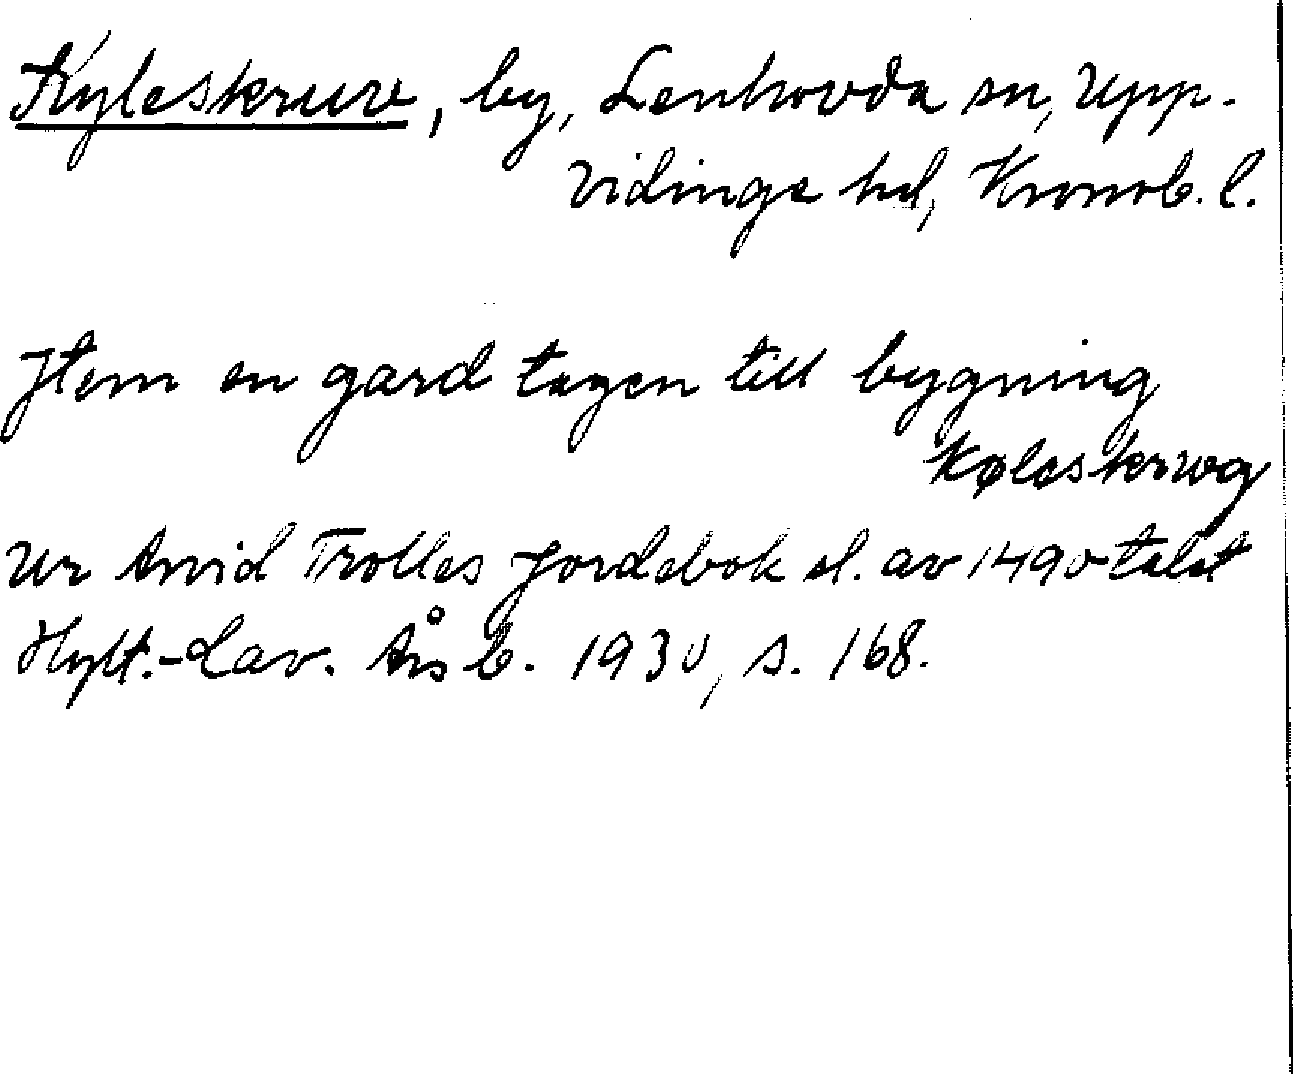 Kyleskruv, by, Lenhovda sn, Upp-
vidinge hd, Kronob. l.
Item en gard tagen till bygning
Køleskrwg
Ur Arvid Trolles Jordebok sl. av 1490-talet
Hylt.-Cav. Årsb. 1930, s. 168.